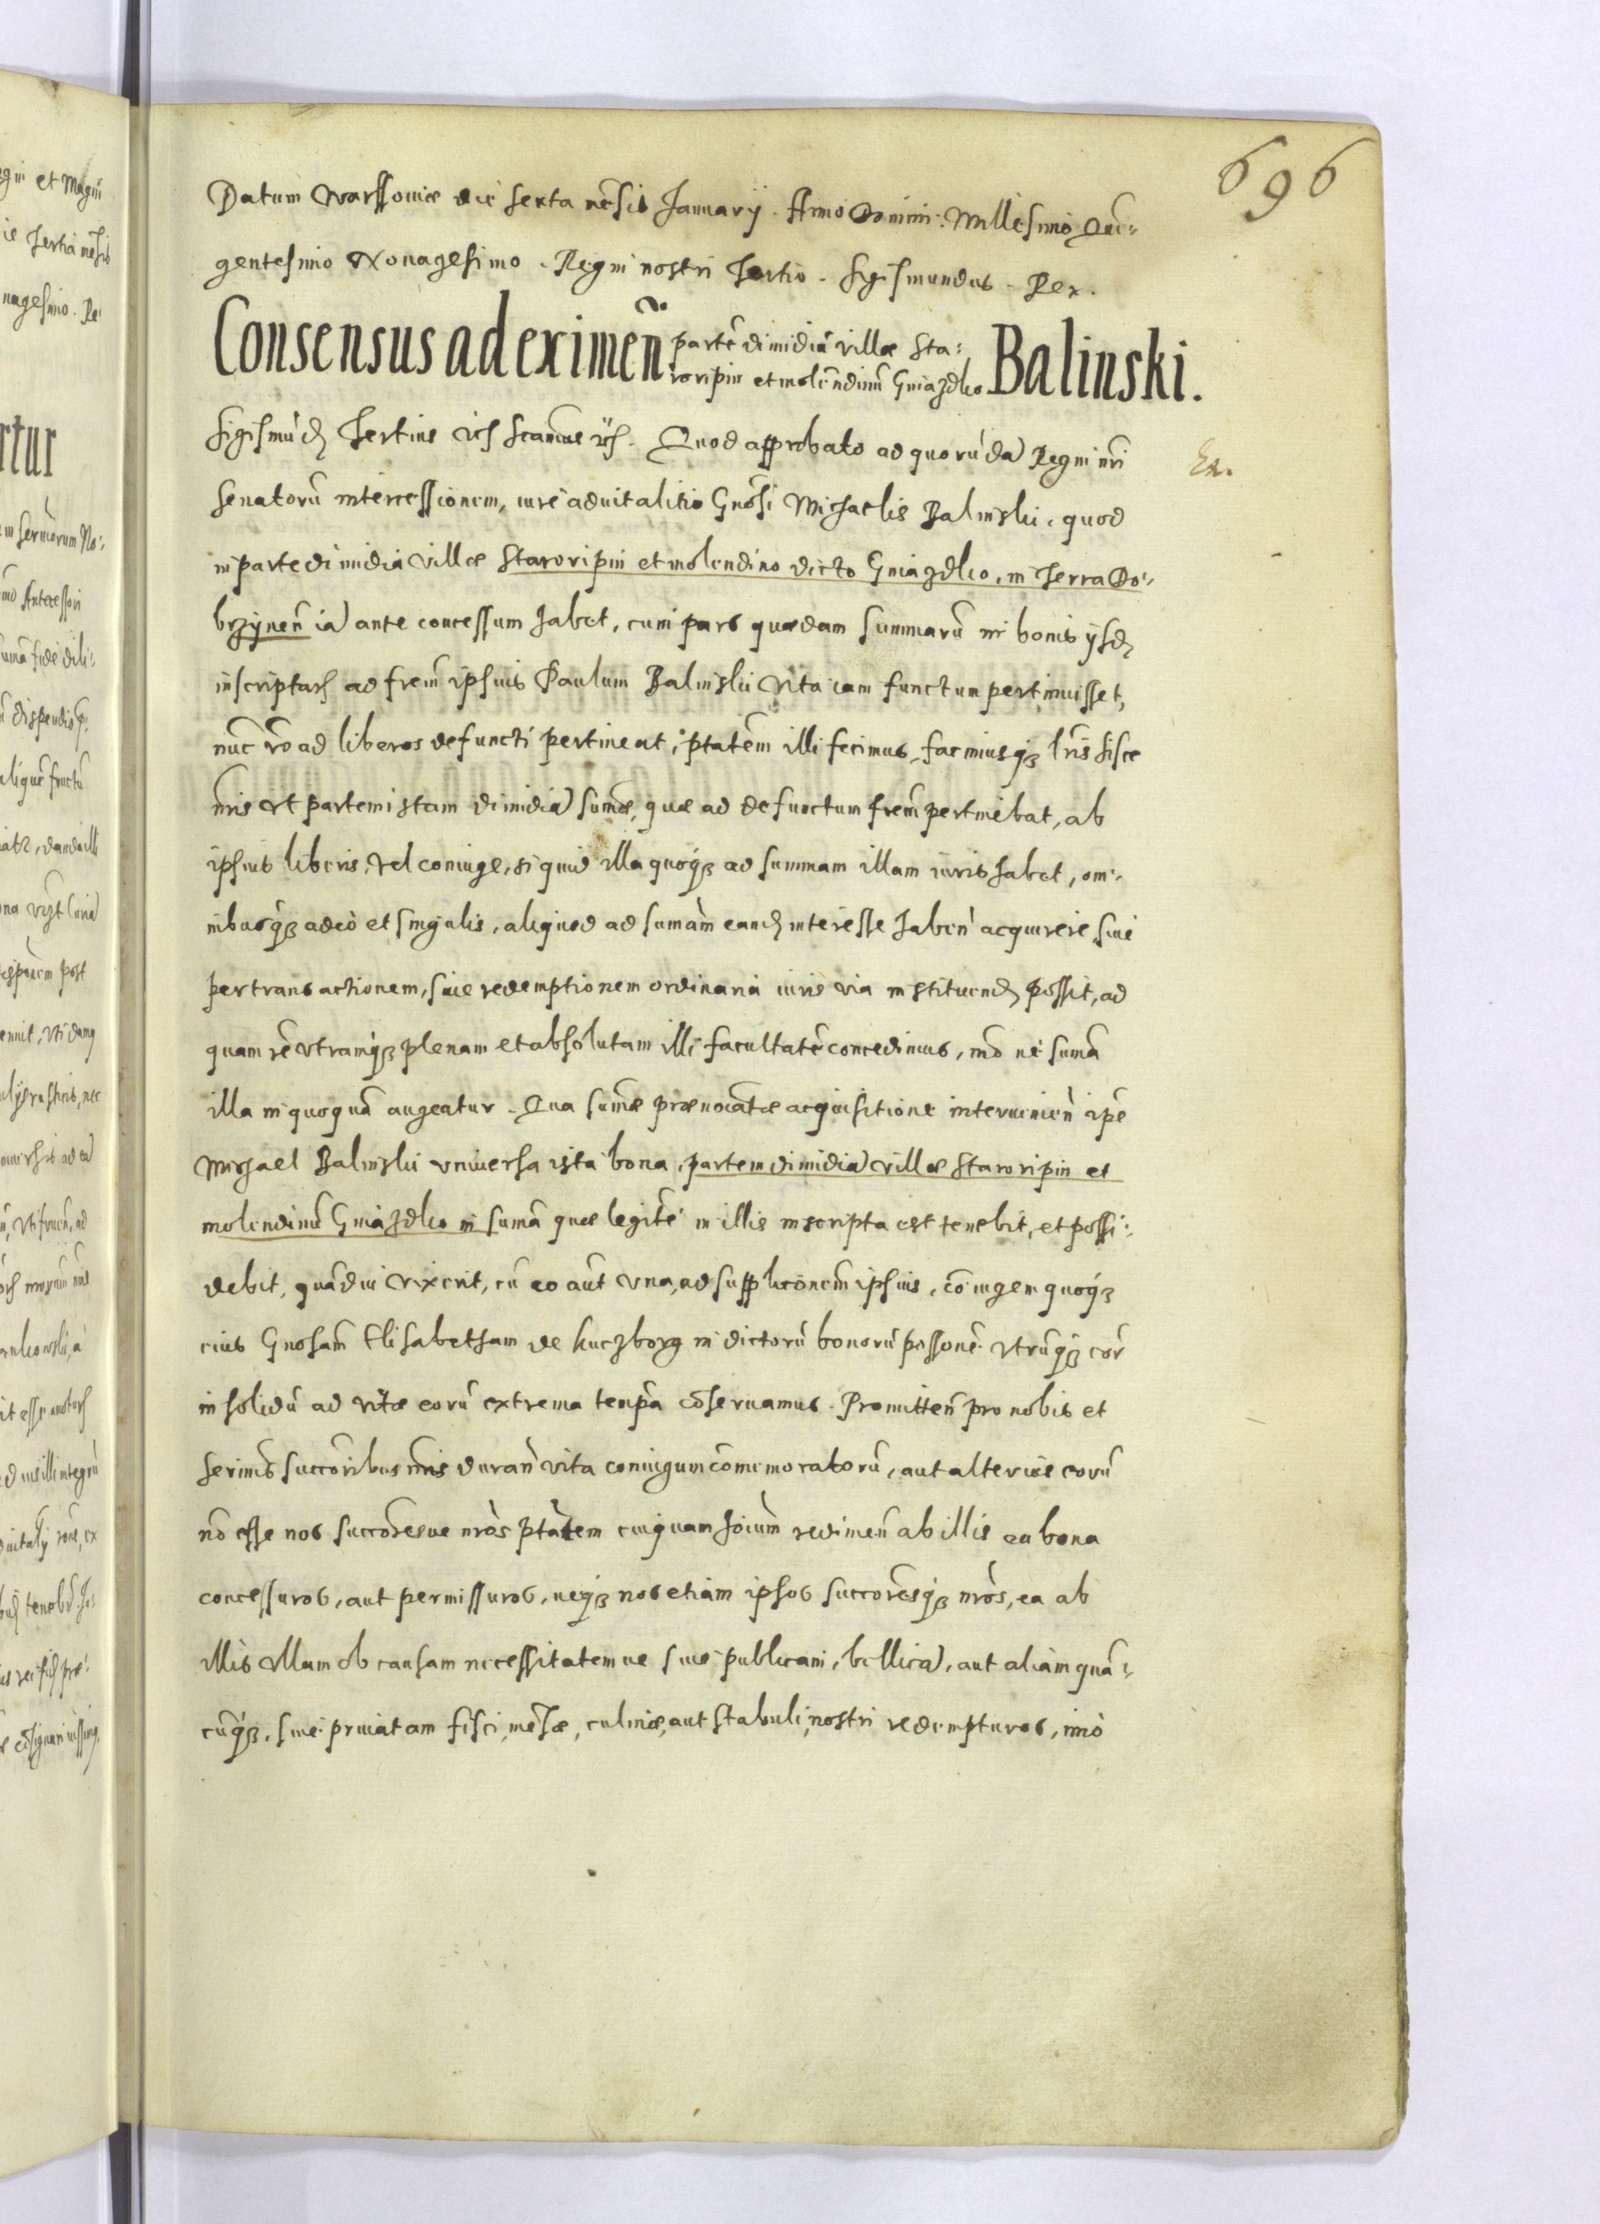 696
Datum Warssoviæ die sexta mēsis Januarij. Anno Domini Millesimo Quī-
gentesimo Nonagesimo. Regni nostri Tertio. Sigismundus Rex.
Consensus ad eximeñ. partē dimidiā villæ Sta-
roripin et molendinū Gniazdko Balinski.
Sigismūdꝫ Tertius Significamus. Quod approbato ad quorūdā Regni nr̃i
Ex.
Senatorū intercessionem, iure aduitalitio Gnōsi Michaelis Balinski, quod
in parte dimidia villæ Staroripin et molendino dicto Gniazdko, in Terra Do-
brzyneñ iā ante concessum habet, cum pars quædam summarū in bonis ijsdꝫ
inscriptarꝫ ad frēm ipsius Paulum Balinski vita iam functum pertinuisset,
nūc v̄o ad liberos defuncti pertineat, ptātēm illi fecimus, facimusqꝫ lr̃is hisce
nr̃is vt partem istam dimidiā sumæ, quæ ad defunctum frēm pertinebat, ab
ipsius liberis, vel coniuge, si quid illa quoqꝫ ad summam illam iuris habet, om-
nibusqꝫ adeò et singulis, aliquod ad sumām eandꝫ interesse habeñ acquirere siue
per transactionem, siue redemptionem ordinaria iuris via instituendꝫ possit, ad
quam rē vtramqꝫ plenam et absolutam illi facultatē concedimus, mō ne sumā
illa in quoquā augeatur. Qua sumæ prænoiatæ acquisitione interuenieñ ip̄e
Michael Balinski vniuersa ista bona, partem dimidiā villæ Staroripin et
molendinū Gniazdko in sumā quæ legitē in illis inscripta est tenebit, et possi-
debit, quādiu vixerit, cū eo aūt vna, ad supplicōnem ipsius, cōiugem quoqꝫ
eius Gnosam Elisabetham de Kuczborg in dictorū bonorū possonē vtrūqꝫ eor̃
in solidū ad vitæ eorū extrema tempā cōseruamus. Promitteñ pro nobis et
Serimis succōribus nr̃is durañ vita coniugum cōmemoratorū, aut alterius eorū
nō esse nos succōresue nr̃os ptātem cuiquam hoīum redimeñ ab illis ea bona
concessuros, aut permissuros, neqꝫ nos etiam ipsos succōresqꝫ nr̃os, ea ab
illis vllam ob causam necessitatemue siue publicam, bellicā, aut aliam quā-
cūqꝫ, siue priuatam fisci, mēsæ, culinæ, aut stabuli nostri redempturos, imò